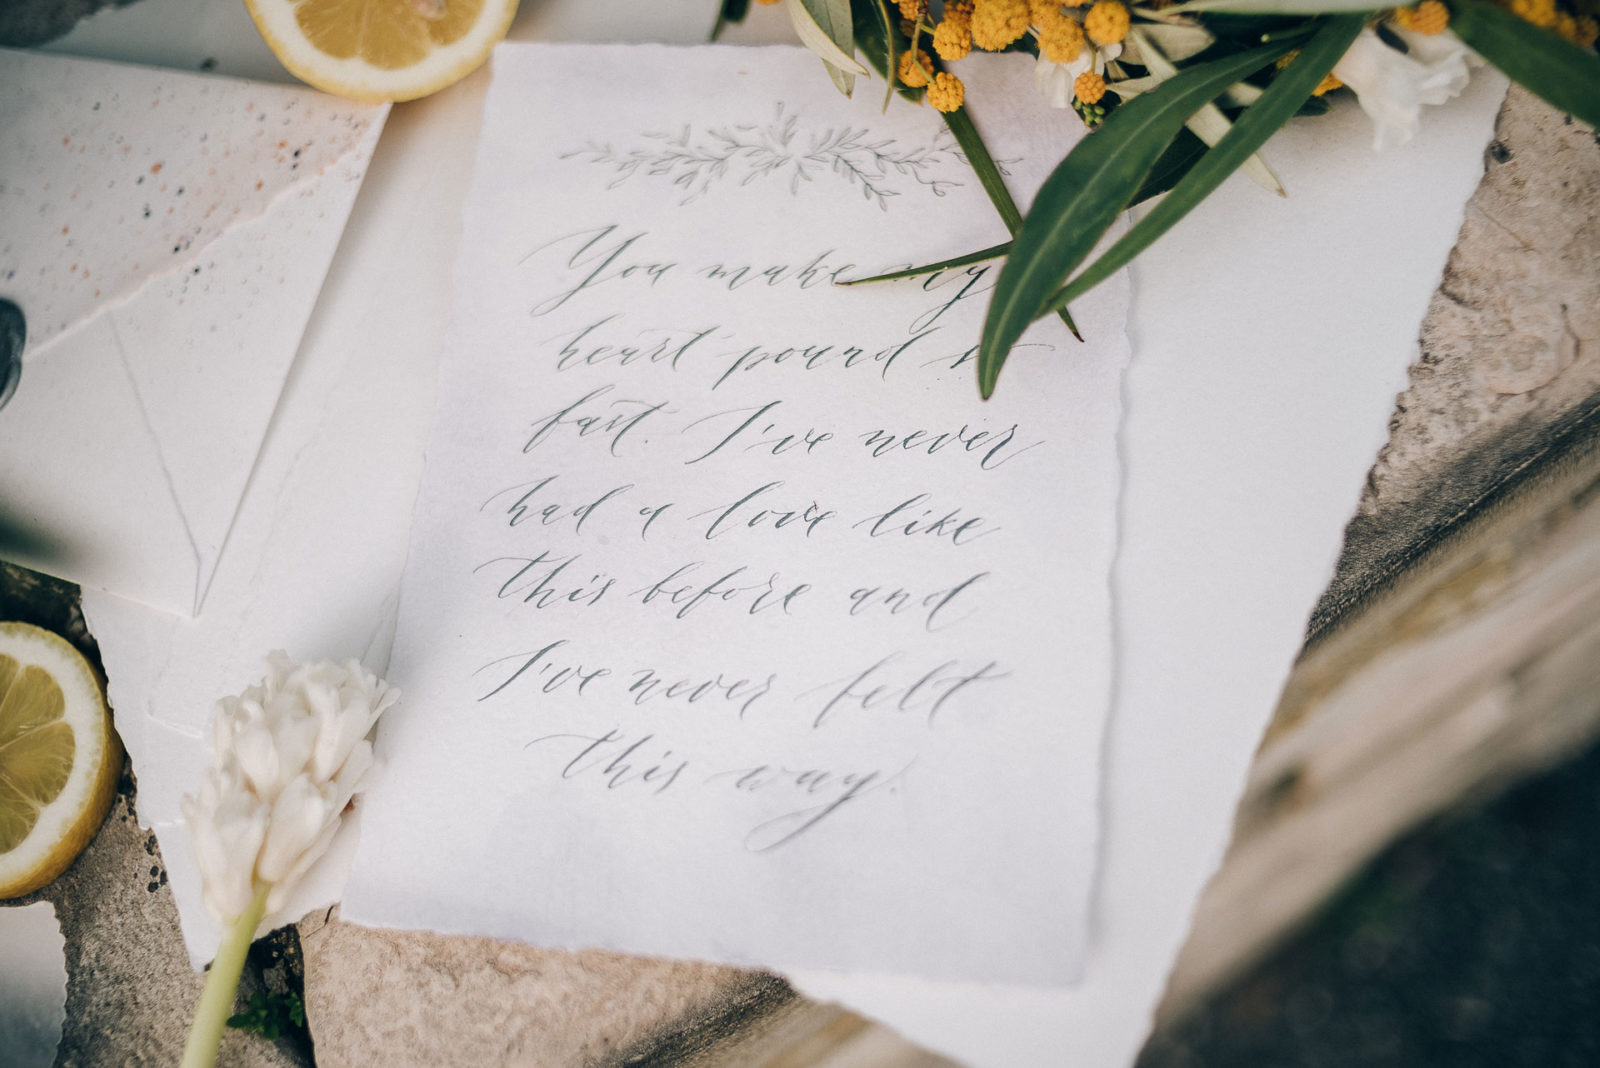 You make my
heart pound s
fast. I've never
had a love like
this before and
I've never felt
this way.